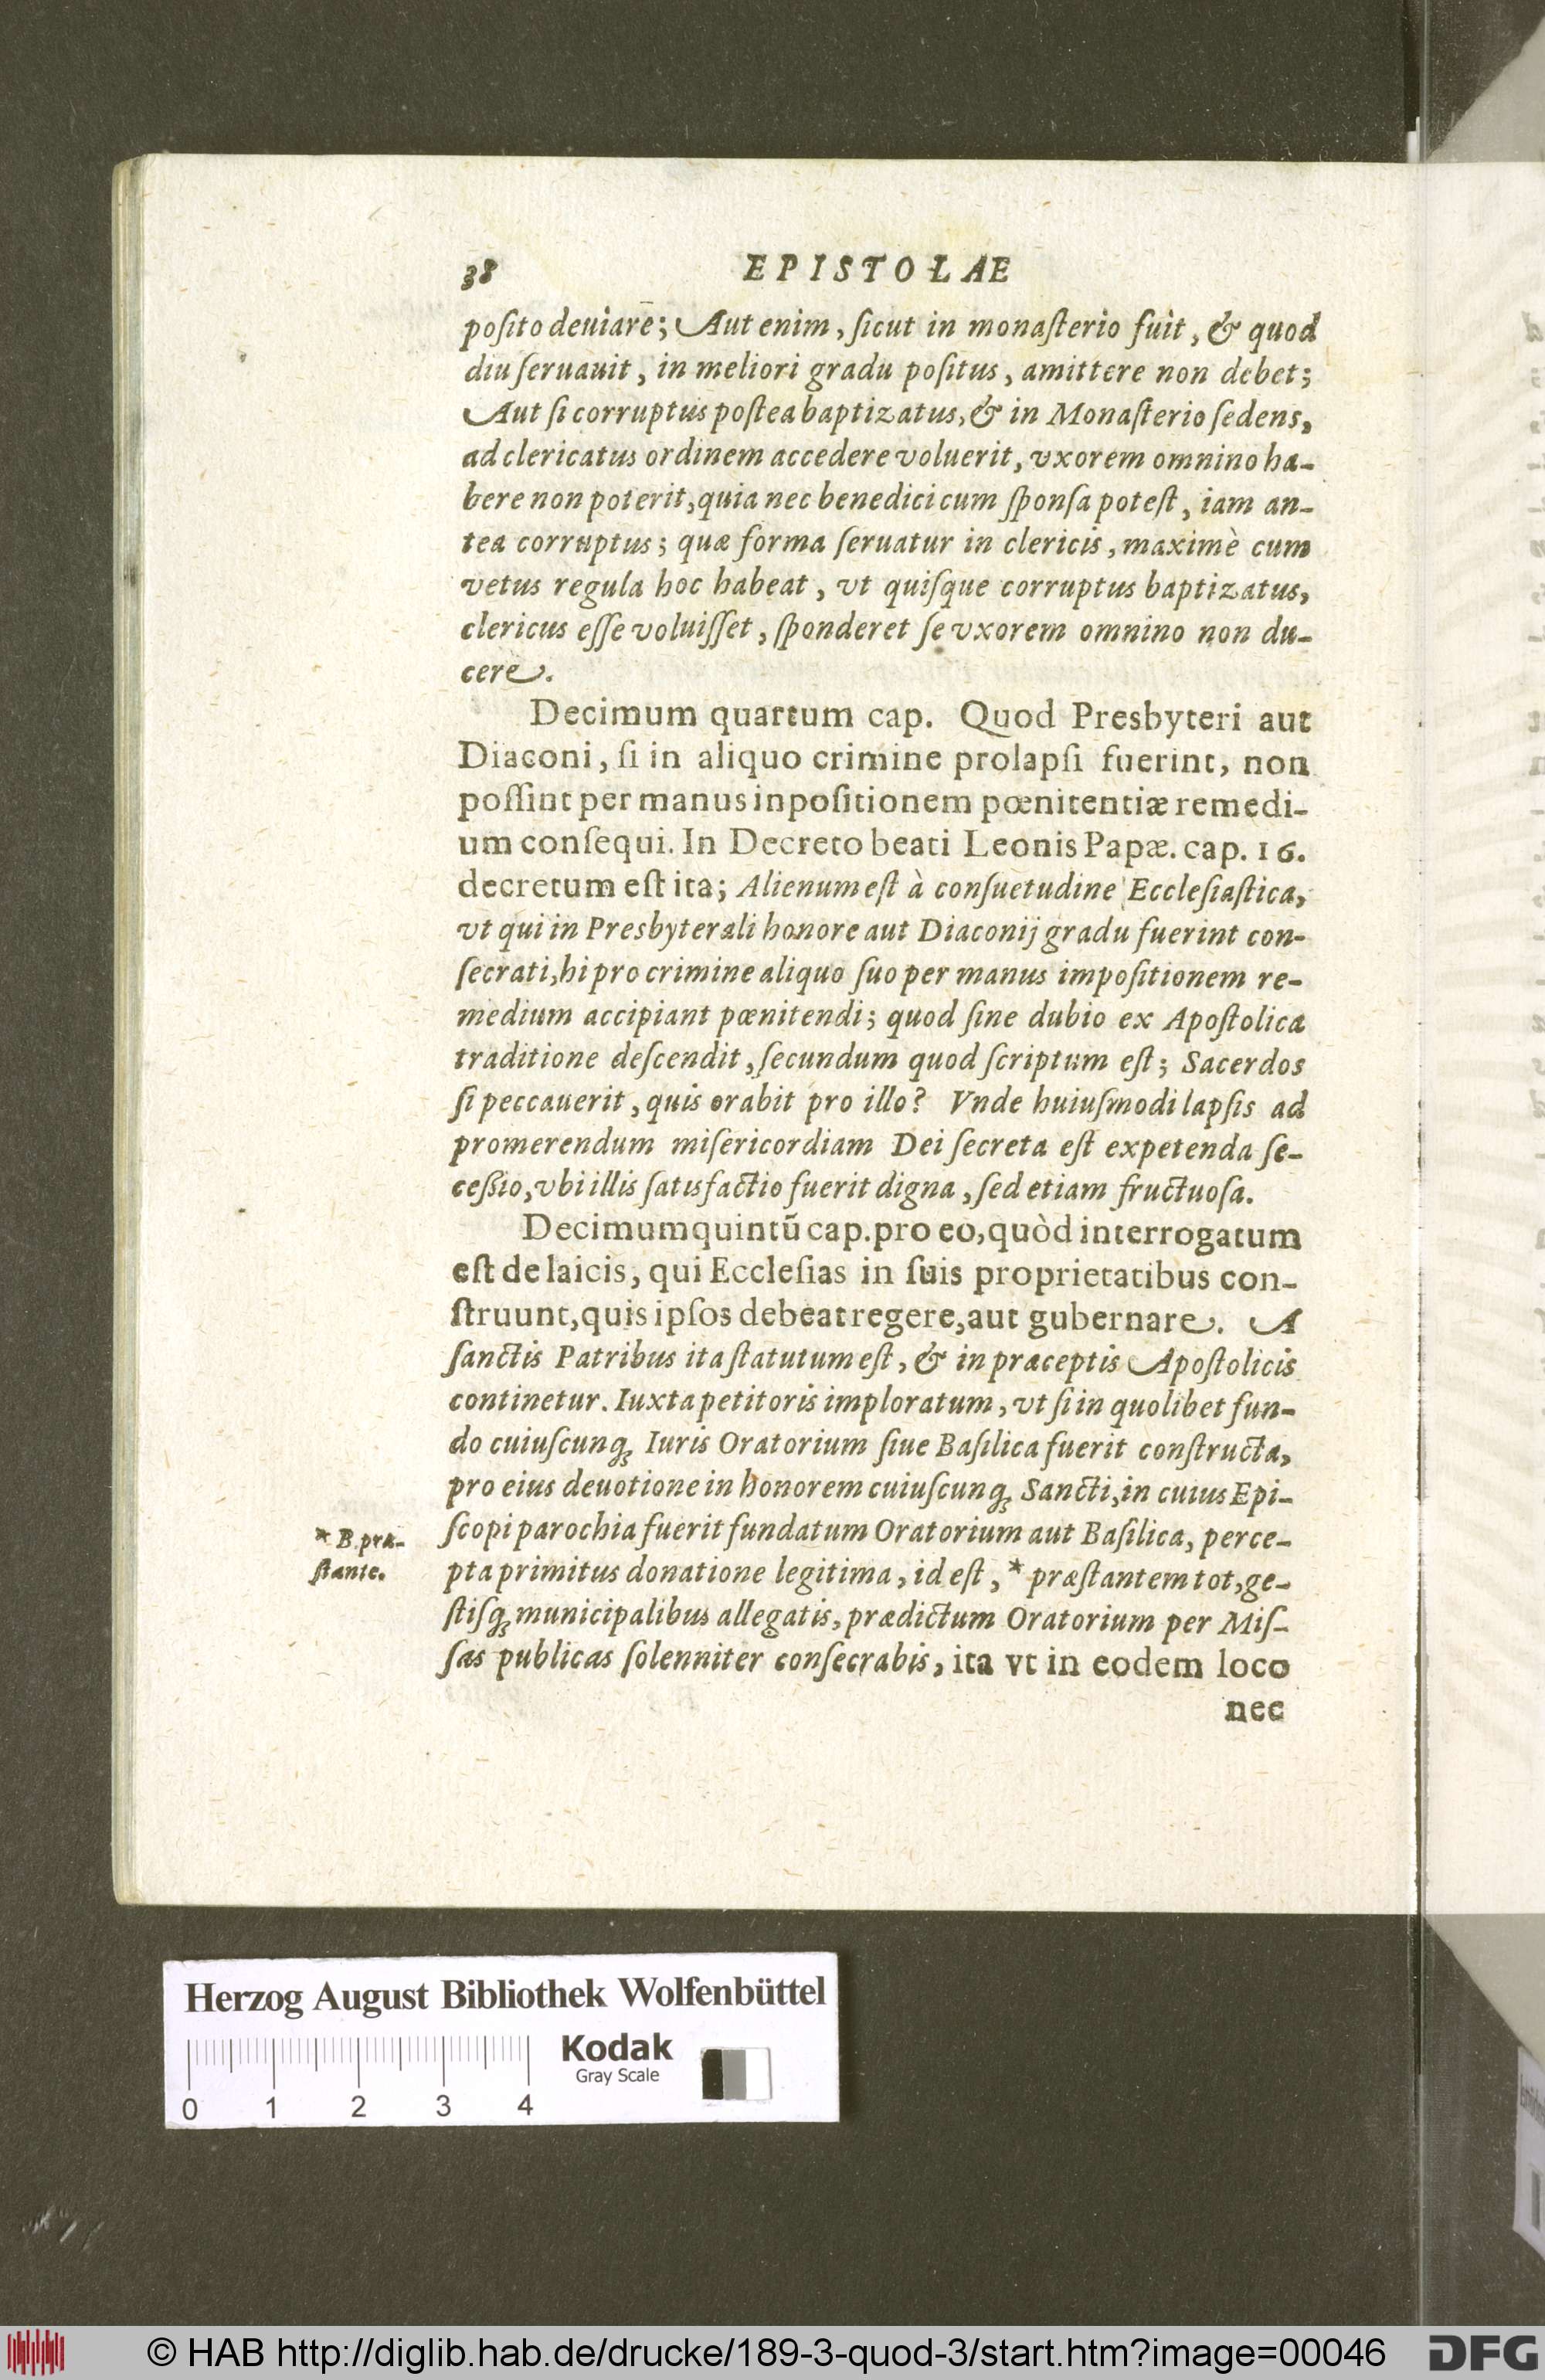 38 EPISTOLAE
poſito deuiare; Aut enim, ſicut in monaſterio fuit, & quod
diu ſeruauit, in meliori gradu poſitus, amittere non debet;
Aut ſi corruptus poſtea baptizatus, & in Monaſterio ſedens,
ad clericatus ordinem accedere voluerit, vxorem omnino ha-
bere non poterit, quia nec benedici cum ſponſa poteſt, iam an-
tea corruptus; quæ forma ſeruatur in clericis, maximè cum
vetus regula hoc habeat, vt quiſque corruptus baptizatus,
clericus eſſe voluiſſet, ſponderet ſe vxorem omnino non du-
cere.
Decimum quartum cap. Quod Presbyteri aut
Diaconi, ſi in aliquo crimine prolapſi fuerint, non
poſſint per manus inpoſitionem pœnitentiæ remedi-
um conſequi. In Decreto beati Leonis Papæ. cap. 16.
decretum eſt ita; Alienum eſt à conſuetudine Eccleſiaſtica,
vt qui in Presbyterali honore aut Diaconij gradu fuerint con-
ſecrati, hi pro crimine aliquo ſuo per manus impoſitionem re-
medium accipiant pœnitendi; quod ſine dubio ex Apoſtolica
traditione deſcendit, ſecundum quod ſcriptum eſt; Sacerdos
ſi peccauerit, quis orabit pro illo? Vnde huiuſmodi lapſis ad
promerendum miſericordiam Dei ſecreta eſt expetenda ſe-
ceßio, vbi illis ſatisfactio fuerit digna, ſed etiam fructuoſa.
Decimumquintū cap. pro eo, quòd interrogatum
eſt de laicis, qui Eccleſias in ſuis proprietatibus con-
ſtruunt, quis ipſos debeat regere, aut gubernare. A
ſanctis Patribus ita ſtatutum eſt, & in præceptis Apoſtolicis
continetur. Iuxta petitoris imploratum, vt ſi in quolibet fun-
do cuiuſcunq; Iuris Oratorium ſiue Baſilica fuerit conſtructa,
pro eius deuotione in honorem cuiuſcunq; Sancti, in cuius Epi-
ſcopi parochia fuerit fundatum Oratorium aut Baſilica, perce-
pta primitus donatione legitima, id eſt, * præſtantem tot, ge-
ſtiſq; municipalibus allegatis, prædictum Oratorium per Miſ-
ſas publicas ſolenniter conſecrabis, ita vt in eodem loco
nec
* B. præ-
ſtante.
Herzog August Bibliothek Wolfenbüttel
Kodak
Gray Scale
0 1 2 3 4
© HAB http://diglib.hab.de/drucke/189-3-quod-3/start.htm?image=00046
DFG